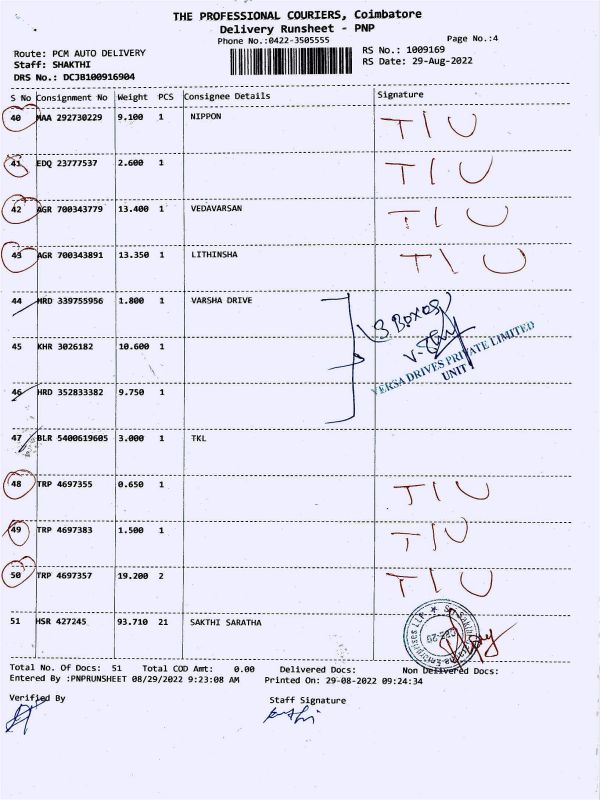 THE PROFESSIONAL COURIERS, Coimbatore
Delivery Runsheet - PNP
Phone No.:0422-3505555 Page No.:4
Route: PCM AUTO DELIVERY RS No.: 1009169
Staff: SHAKTHI RS Date: 29-Aug-2022
DRS No.: DCJB100916904
S No Consignment No Weight PCS Consignee Details Signature
40 MAA 292730229 9.100 1 NIPPON T I U
41 EDQ 23777537 2.600 1 T I U
42 AGR 700343779 13.400 1 VEDAVARSAN T I U
43 AGR 700343891 13.350 1 LITHINSHA T I U
44 HRD 339755956 1.800 1 VARSHA DRIVE
3 Boxes
VERSA DRIVES PRIVATE LIMITED
UNIT
45 KHR 3026182 10.600 1
46 HRD 352833382 9.750 1
47 BLR 5400619605 3.000 1 TKL
48 TRP 4697355 0.650 1 T I U
49 TRP 4697383 1.500 1 T I U
50 TRP 4697357 19.200 2 T I U
51 HSR 427245 93.710 21 SAKTHI SARATHA
Total No. Of Docs: 51 Total COD Amt: 0.00 Delivered Docs: Non Delivered Docs:
Entered By :PNPRUNSHEET 08/29/2022 9:23:08 AM Printed On: 29-08-2022 09:24:34
Verified By Staff Signature